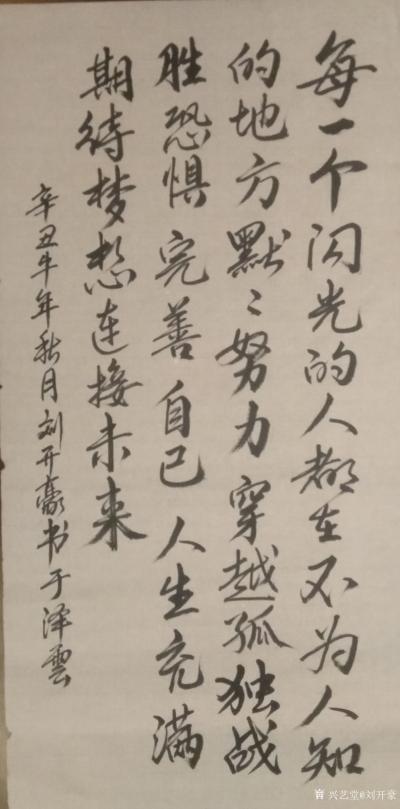 每一个闪光的人都在不为人知
的地方默〻努力穿越孤独战
胜恐惧完善自己人生充满
期待梦想连接未来
辛丑牛年秋月刘开豪书于泽雲
兴艺堂@刘开豪